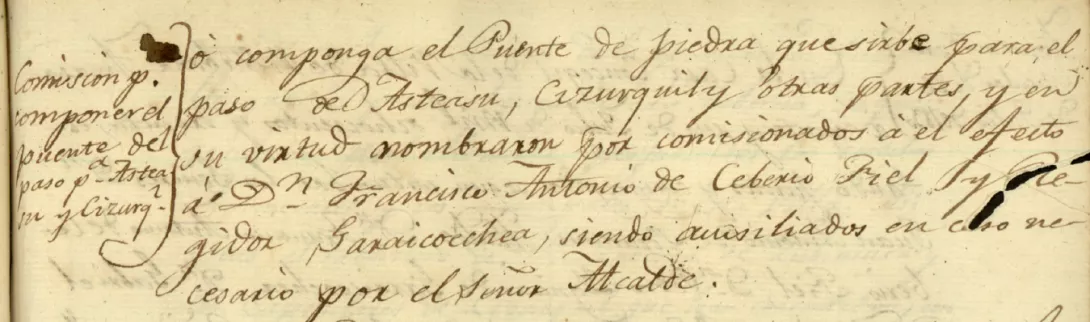 Comision p.r
componer el
puente del
paso p.a Astea
su y Cizurq.l
ó componga el Puente de piedra que sirbe para el
paso de Asteasu, Cizurquil y otras partes, y en
su virtud nombraron por comisionados à el efecto
á D.n Francisco Antonio de Ceberio Fiel y Re-
gidor Garaicoechea, siendo ausiliados en caso ne-
cesario por el Señor Alcalde.